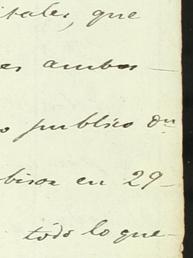 itales, que
es ambos
o publico en
bison en 29-
todo lo que-